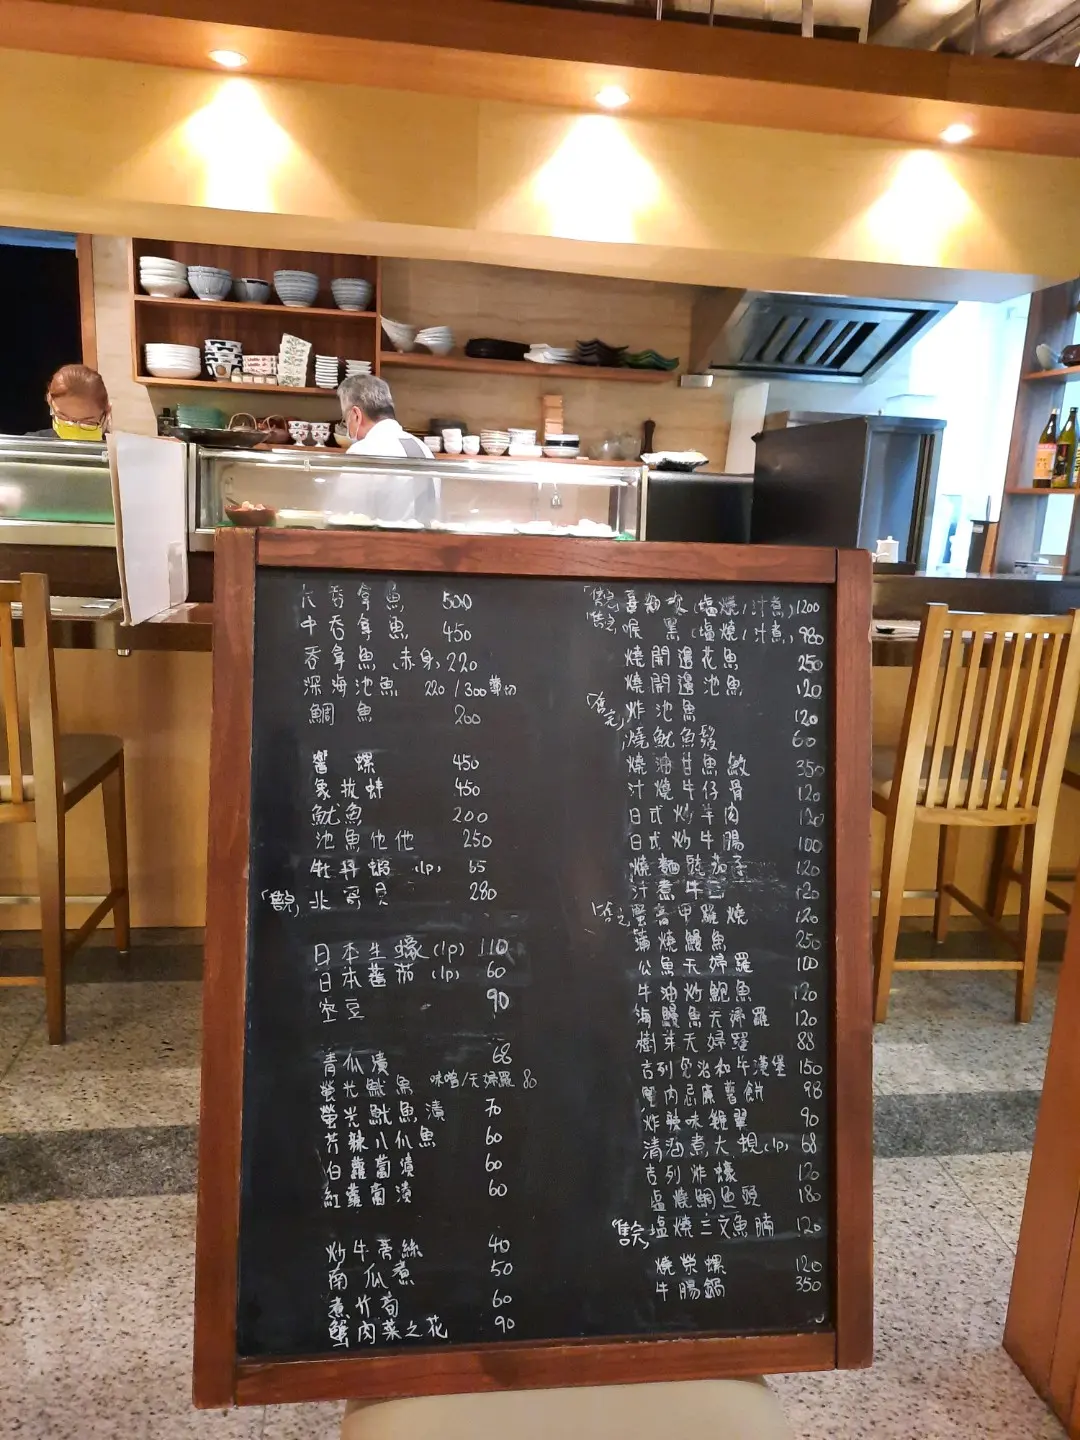 大吞拿魚 500
中吞拿魚 450
吞拿魚(赤身) 220
深海池魚 220/300薄切
鯛魚 200
響螺 450
象拔蚌 450
魷魚 200
池魚他他 250
牡丹蝦 (1p) 65
「售完」北寄貝 280
日本生蠔(1p) 110
日本蕃茄(1p) 60
空豆 90
青瓜漬 68
螢光魷魚 味噌/天婦羅 80
螢光魷魚漬 70
芥辣八爪魚 60
白蘿蔔漬 60
紅蘿蔔漬 60
炒牛蒡絲 40
南瓜煮 50
煮竹筍 60
蟹肉菜之花 90
「售完」喜知次(塩燒/汁煮) 1200
「售完」喉黑(塩燒/汁煮) 980
燒開邊花魚 250
燒開邊池魚 120
「售完」炸池魚 120
燒魷魚鬚 60
燒油甘魚鮫 350
汁燒牛仔骨 120
日式炒羊肉 120
日式炒牛腸 100
燒麵豉茄子 120
汁煮牛 120
「售完」蟹膏甲羅燒 120
蒲燒鰻魚 250
公魚天婦羅 100
牛油炒鮑魚 120
海鰻魚天婦羅 120
樹芽天婦羅 88
吉列包汁和牛漢堡 150
蟹肉忌廉薯餅 98
炸辣味雞翼 90
清酒煮大蜆(1p) 68
吉列炸蠔 120
塩燒鯛魚頭 180
「售完」塩燒三文魚腩 120
燒榮螺 120
牛腸鍋 350